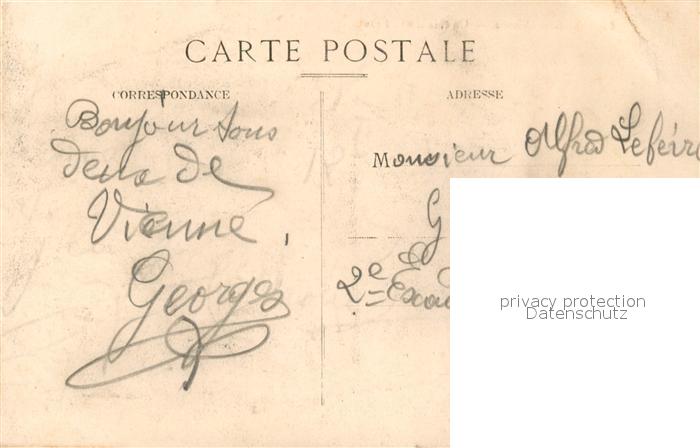 CARTE POSTALE
CORRESPONDANCE
ADRESSE
Bonjour tous
deux de
Vienne,
Georges
Monsieur Alfred Lefévre
G
2e Esca
privacy protection
Datenschutz